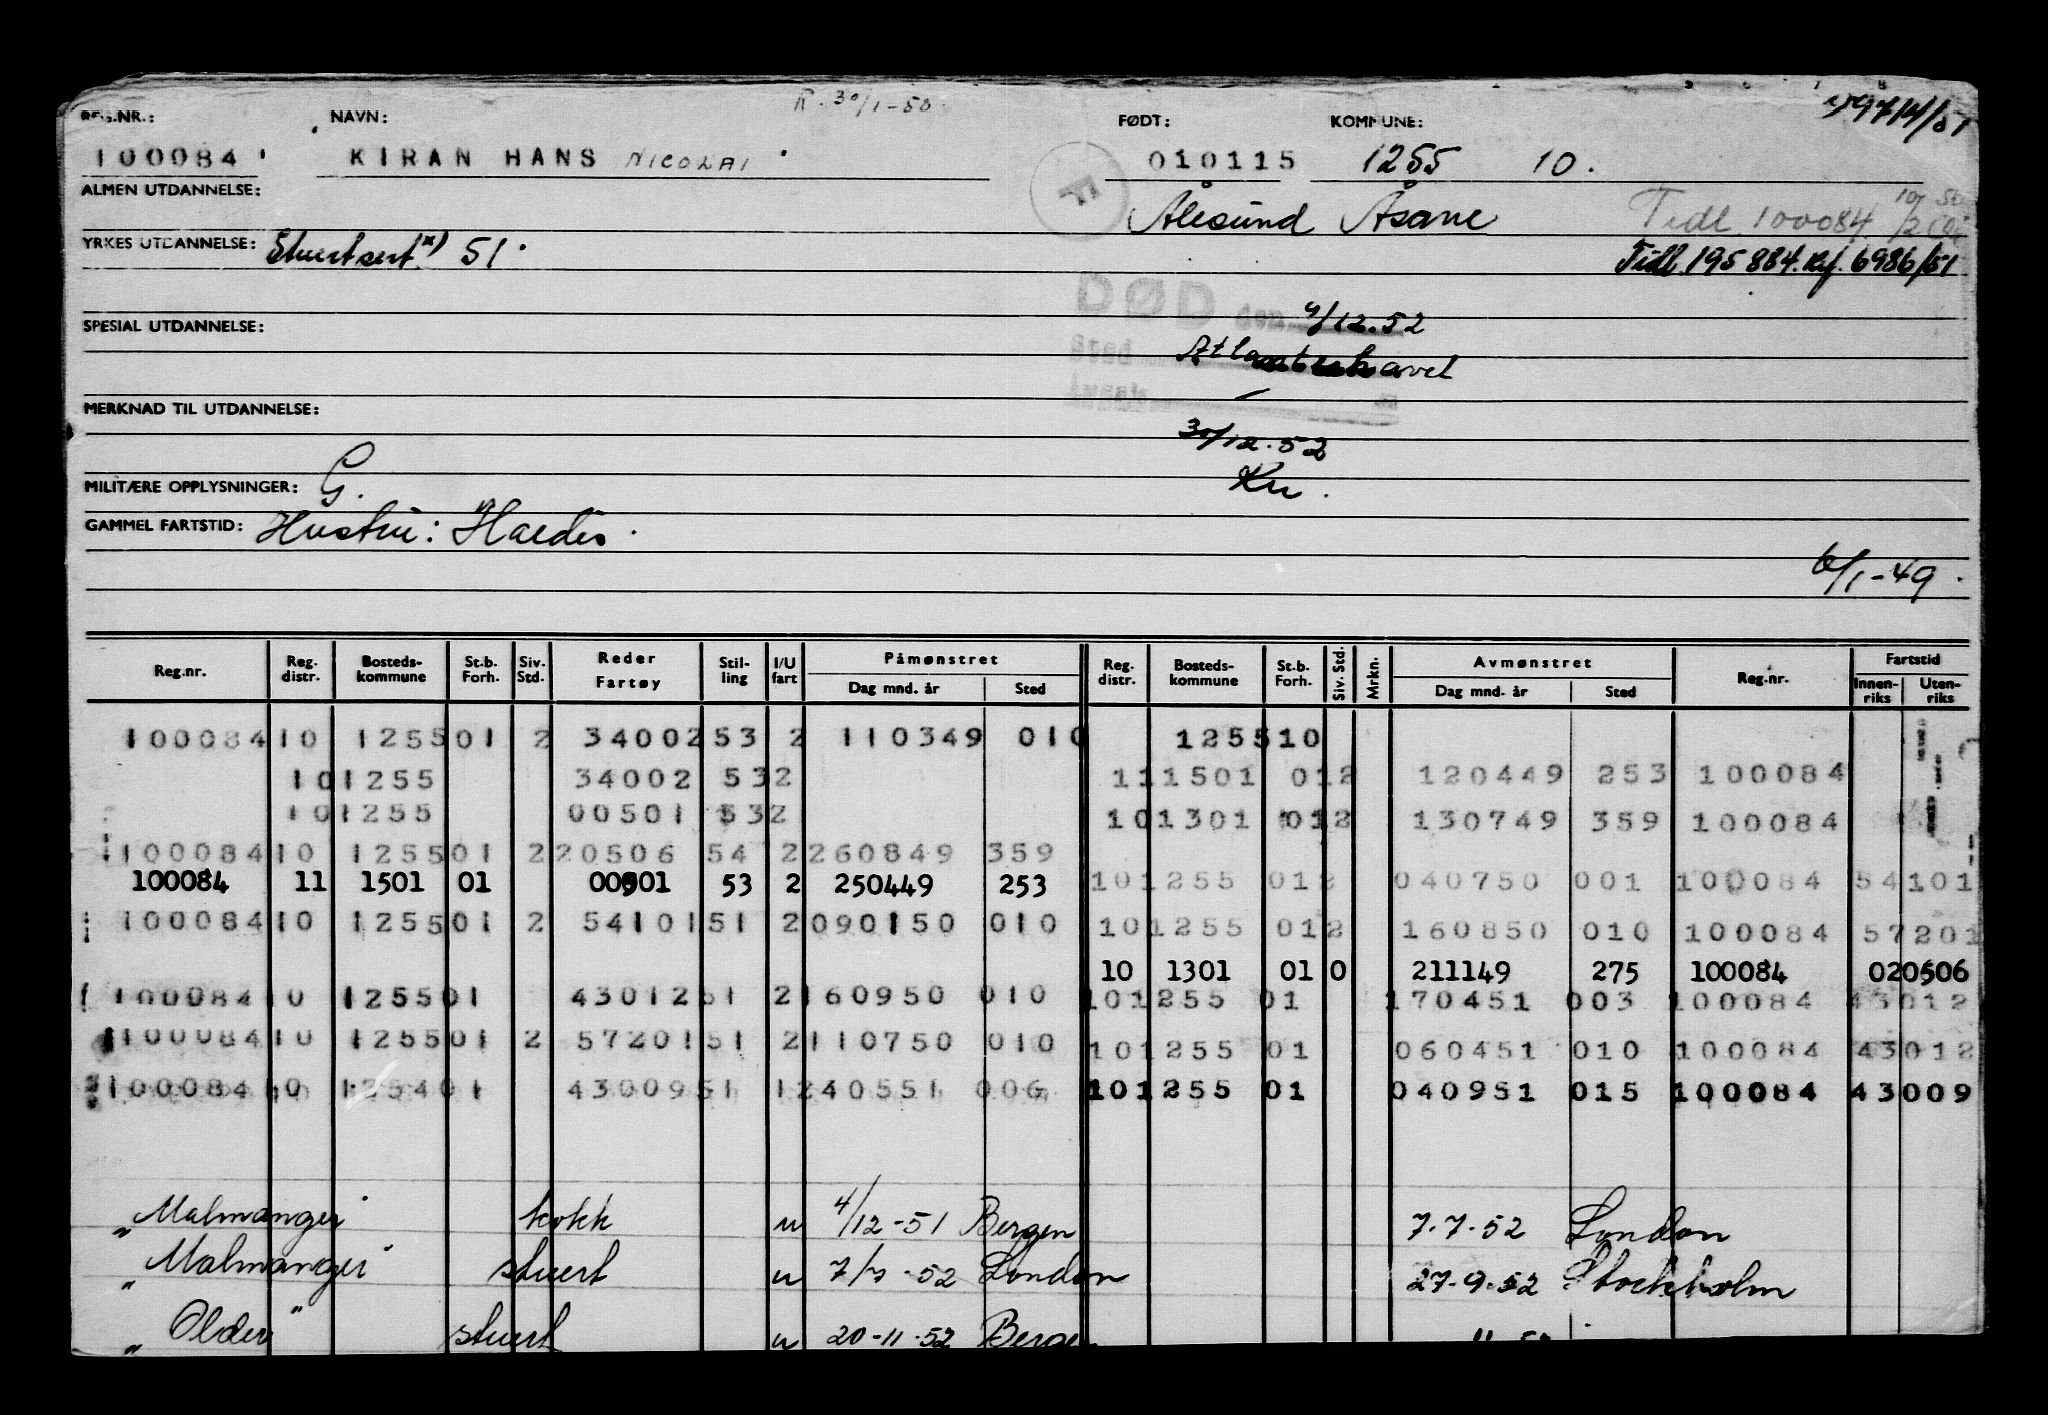 R. 30/1-50.
REG.NR.: NAVN: FØDT: KOMMUNE:
100084 KIRAN HANS NICOLAI 010115 1255 10.
ALMEN UTDANNELSE: Ålesund Åsane Tidl. 100084
YRKES UTDANNELSE: Stuertsert. x) 51. Tidl. 195884. Ref. 6986/51
DØD den 4/12.52
SPESIAL UTDANNELSE:
Sted Atlanterhavet
MERKNAD TIL UTDANNELSE:
30/12.52
MILITÆRE OPPLYSNINGER: G. Kn.
GAMMEL FARTSTID: Hustru: Haldis.
6/1-49.
Reg.nr. Reg. distr. Bosteds-kommune St.b. Forh. Siv. Std. Reder Fartøy Stil-ling I/U fart Påmønstret Dag mnd. år Sted Reg. distr. Bosteds-kommune St.b. Forh. Siv. Std. Mrkn. Avmønstret Dag mnd. år Sted Reg.nr. Fartstid Innen-riks Uten-riks
100084 10 1255 01 2 34002 53 2 110349 010 1255 10
10 1255 34002 53 2 11 1501 01 2 120449 253 100084
10 1255 00501 53 2 10 1301 01 2 130749 359 100084
100084 10 1255 01 2 20506 54 2 260849 359
100084 11 1501 01 00501 53 2 250449 253 10 1255 01 2 040750 001 100084 54101
100084 10 1255 01 2 54101 51 2 090150 010 10 1255 01 2 160850 010 100084 57201
10 1301 01 0 211149 275 100084 020506
100084 10 1255 01 43012 51 2 160950 010 10 1255 01 170451 003 100084 43012
100084 10 1255 01 2 57201 51 2 110750 010 10 1255 01 060451 010 100084 43012
100084 10 1254 01 43009 51 1 240551 006 10 1255 01 040951 015 100084 43009
„Malmanger" kokk u 4/12-51 Bergen 7.7.52 London
„Malmanger" stuert u 7/7-52 London 27.9.52 Stockholm
„Olden" stuert u 20-11-52 Bergen